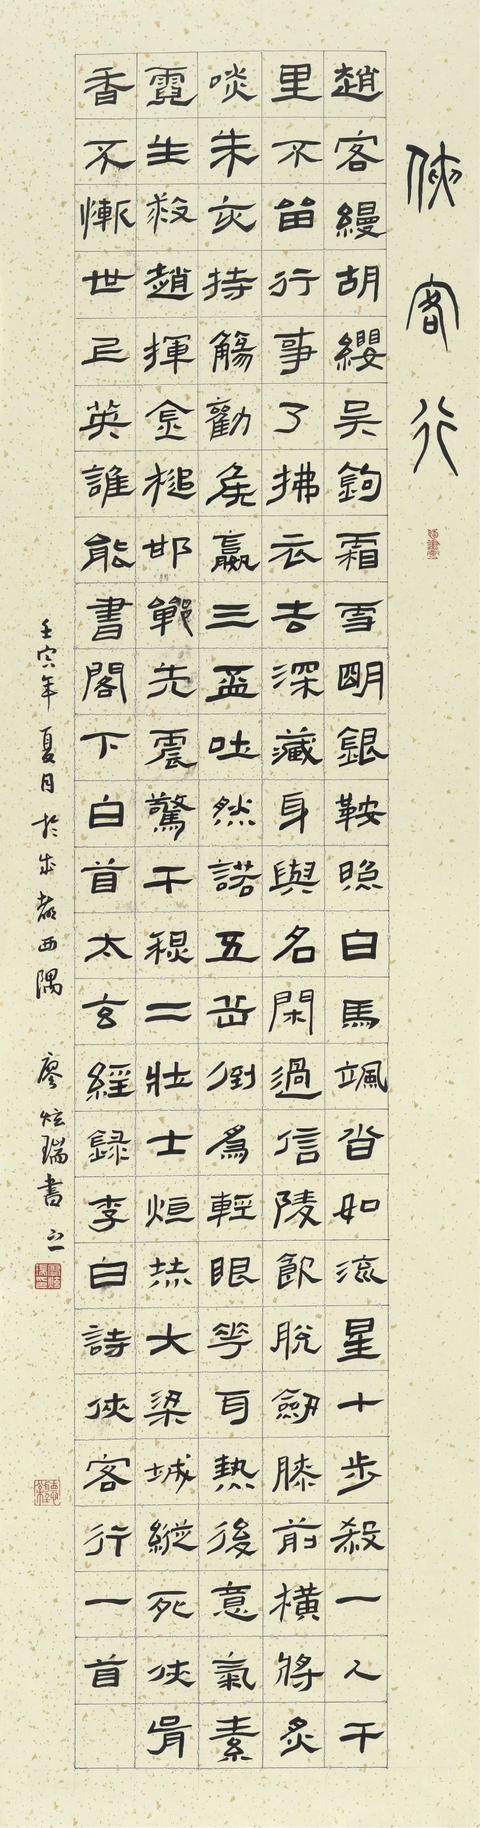 俠客行
趙客縵胡纓吳鉤霜雪明銀鞍照白馬颯沓如流星十步殺一人千
里不留行事了拂衣去深藏身與名閑過信陵飲脫劍膝前橫將炙
啖朱亥持觴勸侯嬴三盃吐然諾五岳倒爲輕眼花耳熱後意氣素
霓生救趙揮金槌邯鄲先震驚千秋二壯士烜赫大梁城縱死俠骨
香不慚世上英誰能書閣下白首太玄經錄李白詩俠客行一首
壬寅年夏月於成都西隅 廖炫瑞書之